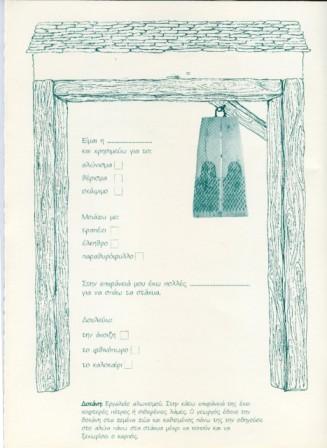 Είμαι η ..............................
και χρησιμεύω για το:
αλώνισμα
θέρισμα
σκάψιμο
Μοιάζω με:
τραπέζι
έλκηθρο
παραθυρόφυλλο
Στην επιφάνειά μου έχω πολλές ..............................
για να σπάω τα στάχυα.
Δουλεύω:
την άνοιξη
το φθινόπωρο
το καλοκαίρι
Δοκάνη: Εργαλείο αλωνισμού. Στην κάτω επιφάνειά της έχει
κοφτερές πέτρες ή σιδερένιες λάμες. Ο γεωργός έδενε την
δοκάνη στα ζώα του και καθισμένος πάνω της την οδηγούσε
στο αλώνι πάνω στα στάχυα μέχρι να κοπούν και να
ξεχωρίσει ο καρπός.